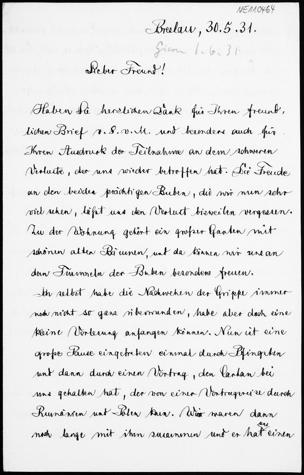 NE110464
Breslau, 30.5.31.
1.6.31.
Lieber Freund!
Haben Sie herzlichen Dank für Ihren freund-
lichen Brief v. 8. v. M. und besonders auch für
Ihren Ausdruck der Teilnahme an dem schweren
Verluste, der uns wieder betroffen hat. Die Freude
an den beiden prächtigen Buben, die wir nun sehr
viel sehen, läßt uns den Verlust bisweilen vergessen.
Zu der Wohnung gehört ein großer Garten mit
schönen alten Bäumen, und da können wir uns an
dem Tummeln der Buben besonders freuen.
Ich selbst habe die Nachwehen der Grippe immer
noch nicht so ganz überwunden, habe aber doch eine
kleine Vorlesung anfangen können. Nun ist eine
große Pause eingetreten einmal durch Pfingsten
und dann durch einen Vortrag, den Cartan bei
uns gehalten hat, der von einer Vortragsreise durch
Rumänien und Polen kam. Wir waren dann
noch lange mit ihm zusammen und er hat einen